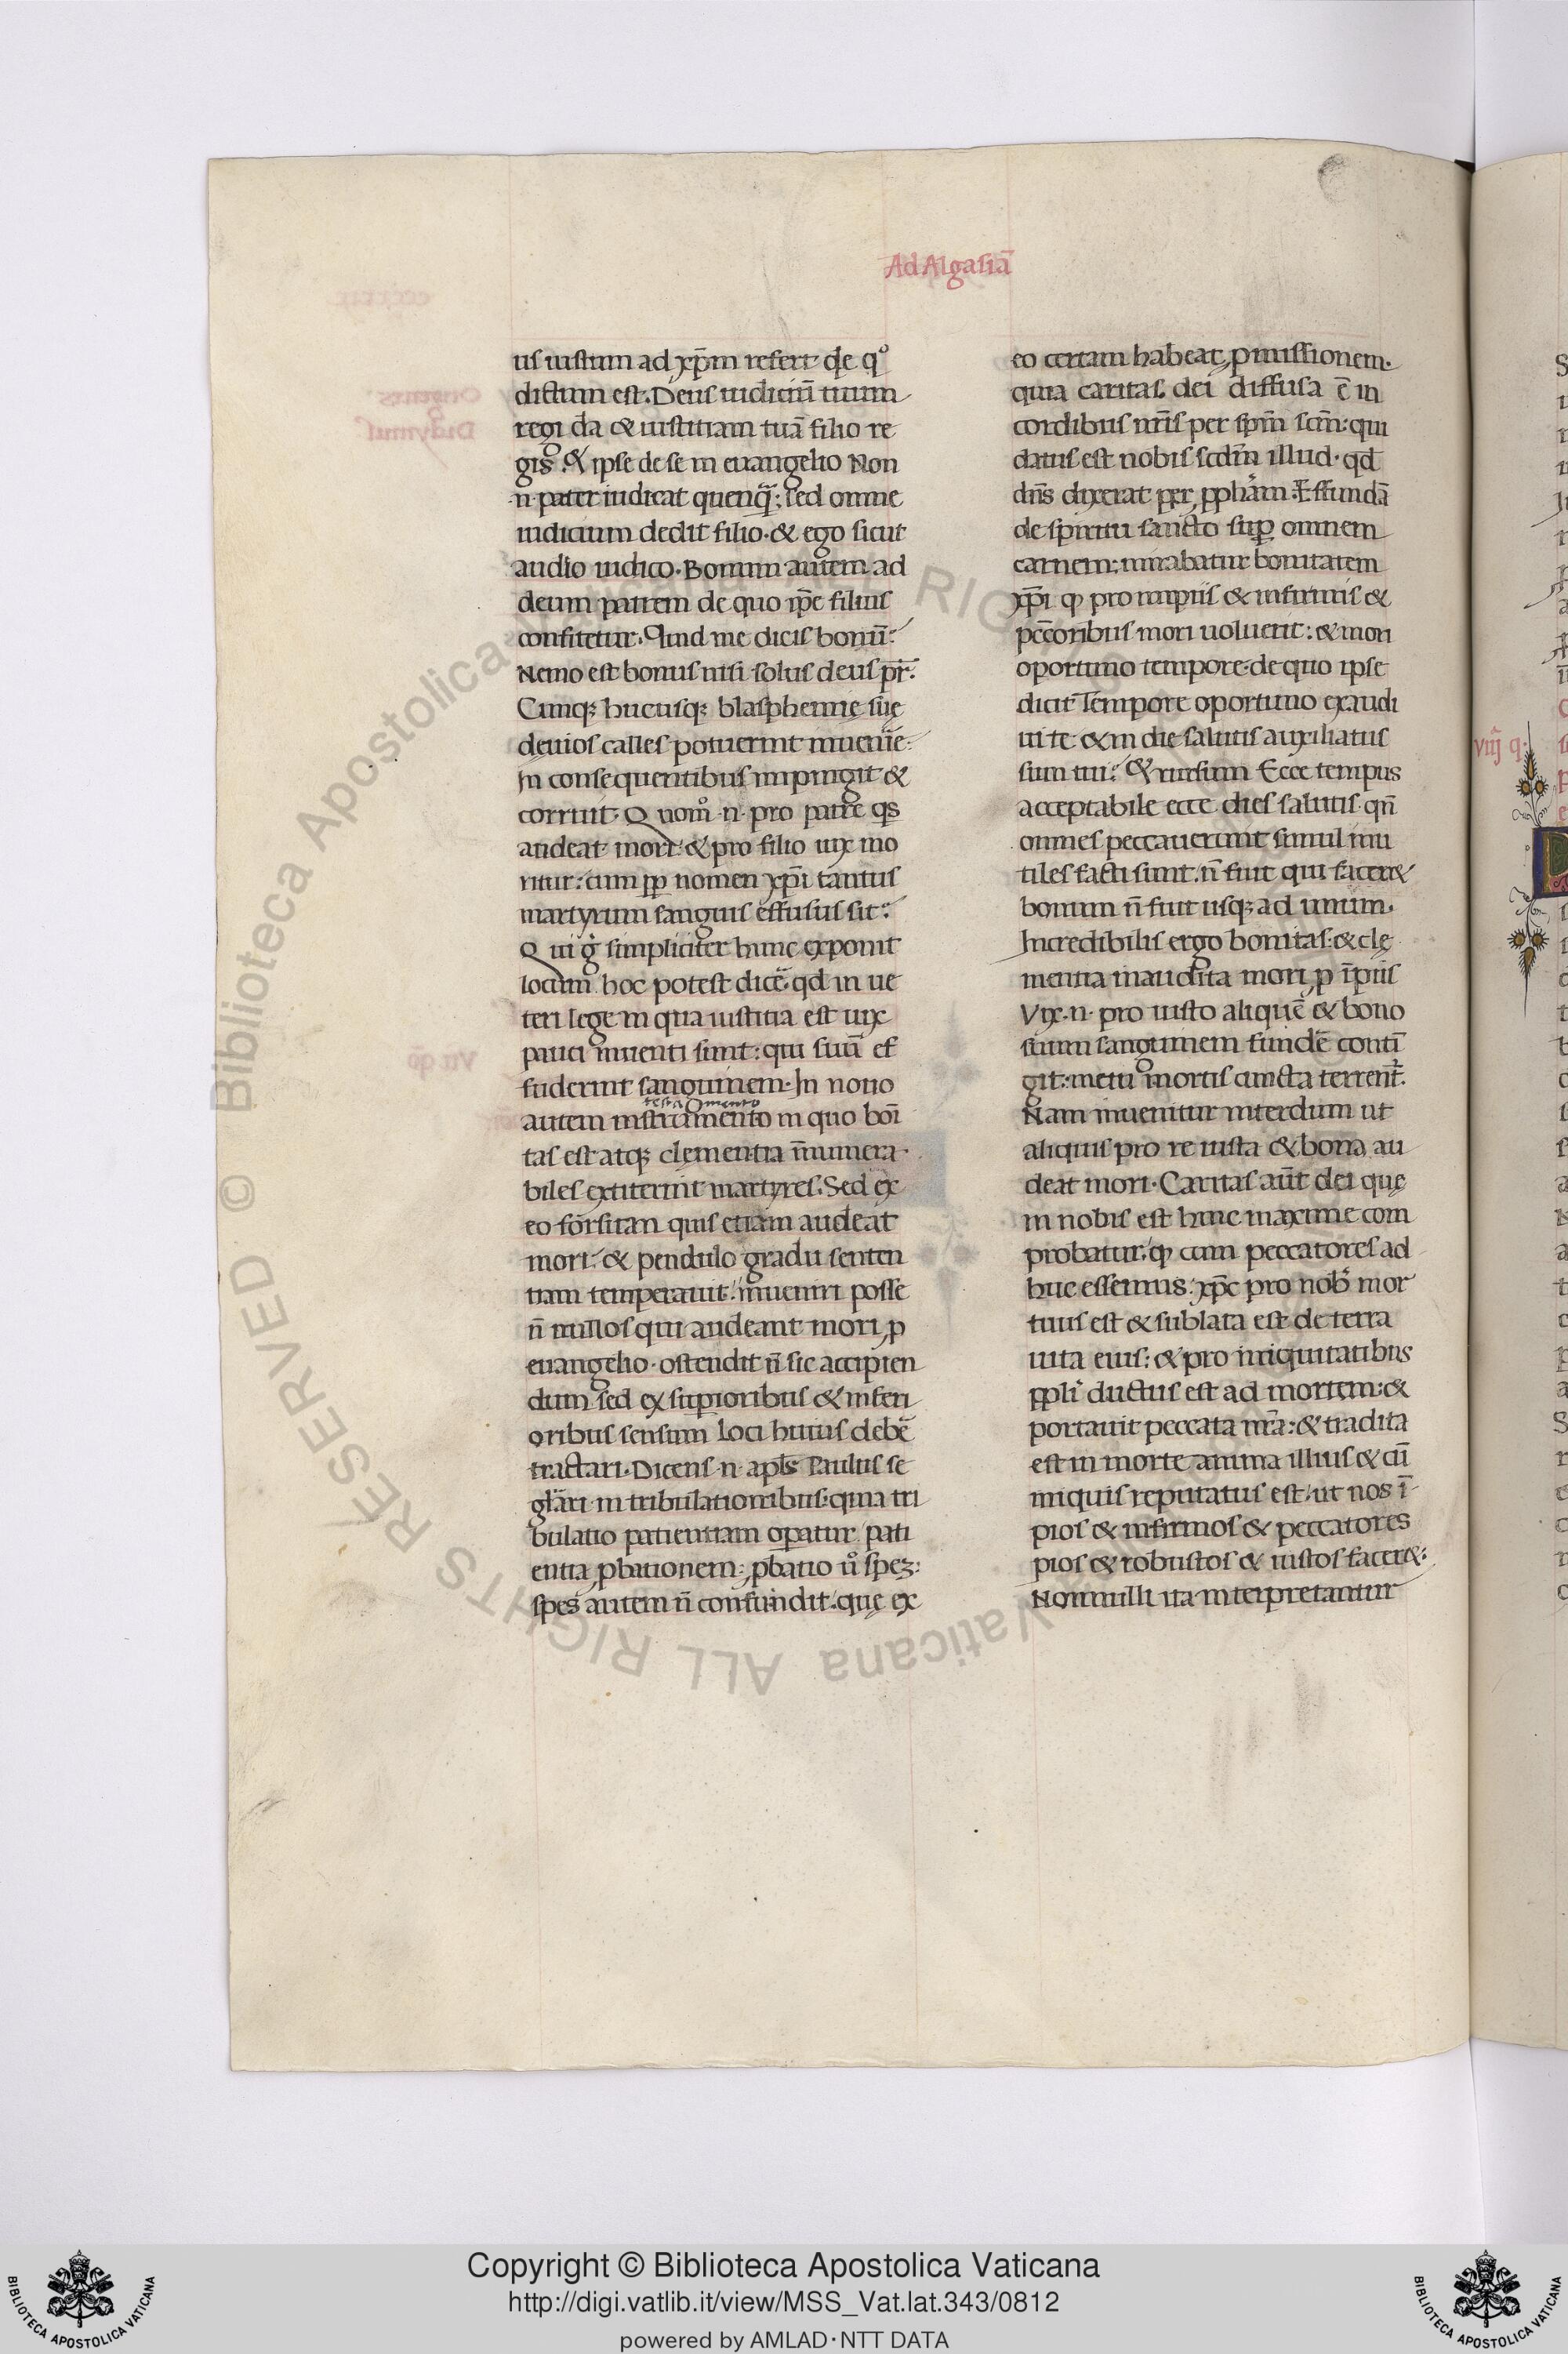 Ad Algasiā
us iustum ad xp̄m refert de qͦ
dictum est. Deus iudiciū tuum
regi da & iustitiam tuā filio re
gis. & ipse de se in euangelio Non
·n· pater iudicat quenq̄: sed omne
iudicium dedit filio· & ego sicut
audio iudico· Bonum autem ad
deum patrem de quo ip̄e filius
confitetur. Quid me dicis bonū:
Nemo est bonus nisi solus deus pr̄.
Cunq; hucusq; blasphemię suę
deuios calles potuerint inuenīe:
In consequentibus impingit &
corruit. Quoͦm ·n· pro patre qs
audeat mori: & pro filio uix mo
ritur: cum pp̄ nomen xp̄i tantus
martyrum sanguis effusus sit:
Qui g̊ simpliciter hunc exponit
locum hoc potest dicē· qd in ue
teri lege in qua iustitia est uix
pauci inuenti sunt: qui suū ef
fuderint sanguinem· In nouo
testamento
autem instrumento in quo boī
tas est atq; clementia īnumera
biles extiterint martyres. Sed ex
eo forsitan quis etiam audeat
mori: & pendulo gradu senten
tiam temperauit: inueniri posse
n̄ nullos qui audeant mori p
euangelio· ostendit n̄ sic accipien
dum sed ex supioribus & inferi
oribus sensum loci huius debē
tractari· Dicens ·n· apl̄s Paulus se
glāri in tribulationibus: quia tri
bulatio patientiam opatur pati
entia pbationem: pbatio uͦ spez:
spes autem n̄ confundit: quę ex
eo certam habeat pmissionem.
quia caritas dei diffusa ē in
cordibus nr̄is per sp̄m sc̄m: qui
datus est nobis scdm̄ illud· qd
dn̄s dixerat per pphām: Effundā
de spiritu sancto sup omnem
carnem: mirabatur bonitatem
xp̄i qͥ pro impiis & infirmis &
pc̄coribus mori uoluerit: & mori
oportuno tempore· de quo ipse
dicit Tempore oportuno exaudi
ui te & in die salutis auxiliatus
sum tui: & rursum Ecce tempus
acceptabile ecce dies salutis· qn̄
omnes peccauerunt simul inu
tiles facti sunt. n̄ fuit qui facer&
bonum n̄ fuit usq; ad unum.
Incredibilis ergo bonitas: & clę
mentia inaudita mori p īpiis
Vix ·n· pro iusto aliquē & bono
suum sanguinem fundē contī
git: metu mortis cuncta terrent̄.
Nam inuenitur interdum ut
aliquis pro re iusta & bona au
deat mori· Caritas aūt dei quę
in nobis est hinc maxime com
probatur: qͥ cum peccatores ad
huc essemus: xp̄c pro nob̄ mor
tuus est & sublata est de terra
uita eius: & pro iniquitatibus
ppli ductus est ad mortem: &
portauit peccata nr̄a: & tradita
est in morte anima illius & cū
iniquis reputatus est: ut nos ī
pios & infirmos & peccatores
pios & robustos & iustos facer&:
Nonnulli ita interpretantur
viij q·
© Biblioteca Apostolica Vaticana ALL RIGHTS RESERVED
Copyright © Biblioteca Apostolica Vaticana
http://digi.vatlib.it/view/MSS_Vat.lat.343/0812
powered by AMLAD·NTT DATA
BIBLIOTECA APOSTOLICA VATICANA
BIBLIOTECA APOSTOLICA VATICANA